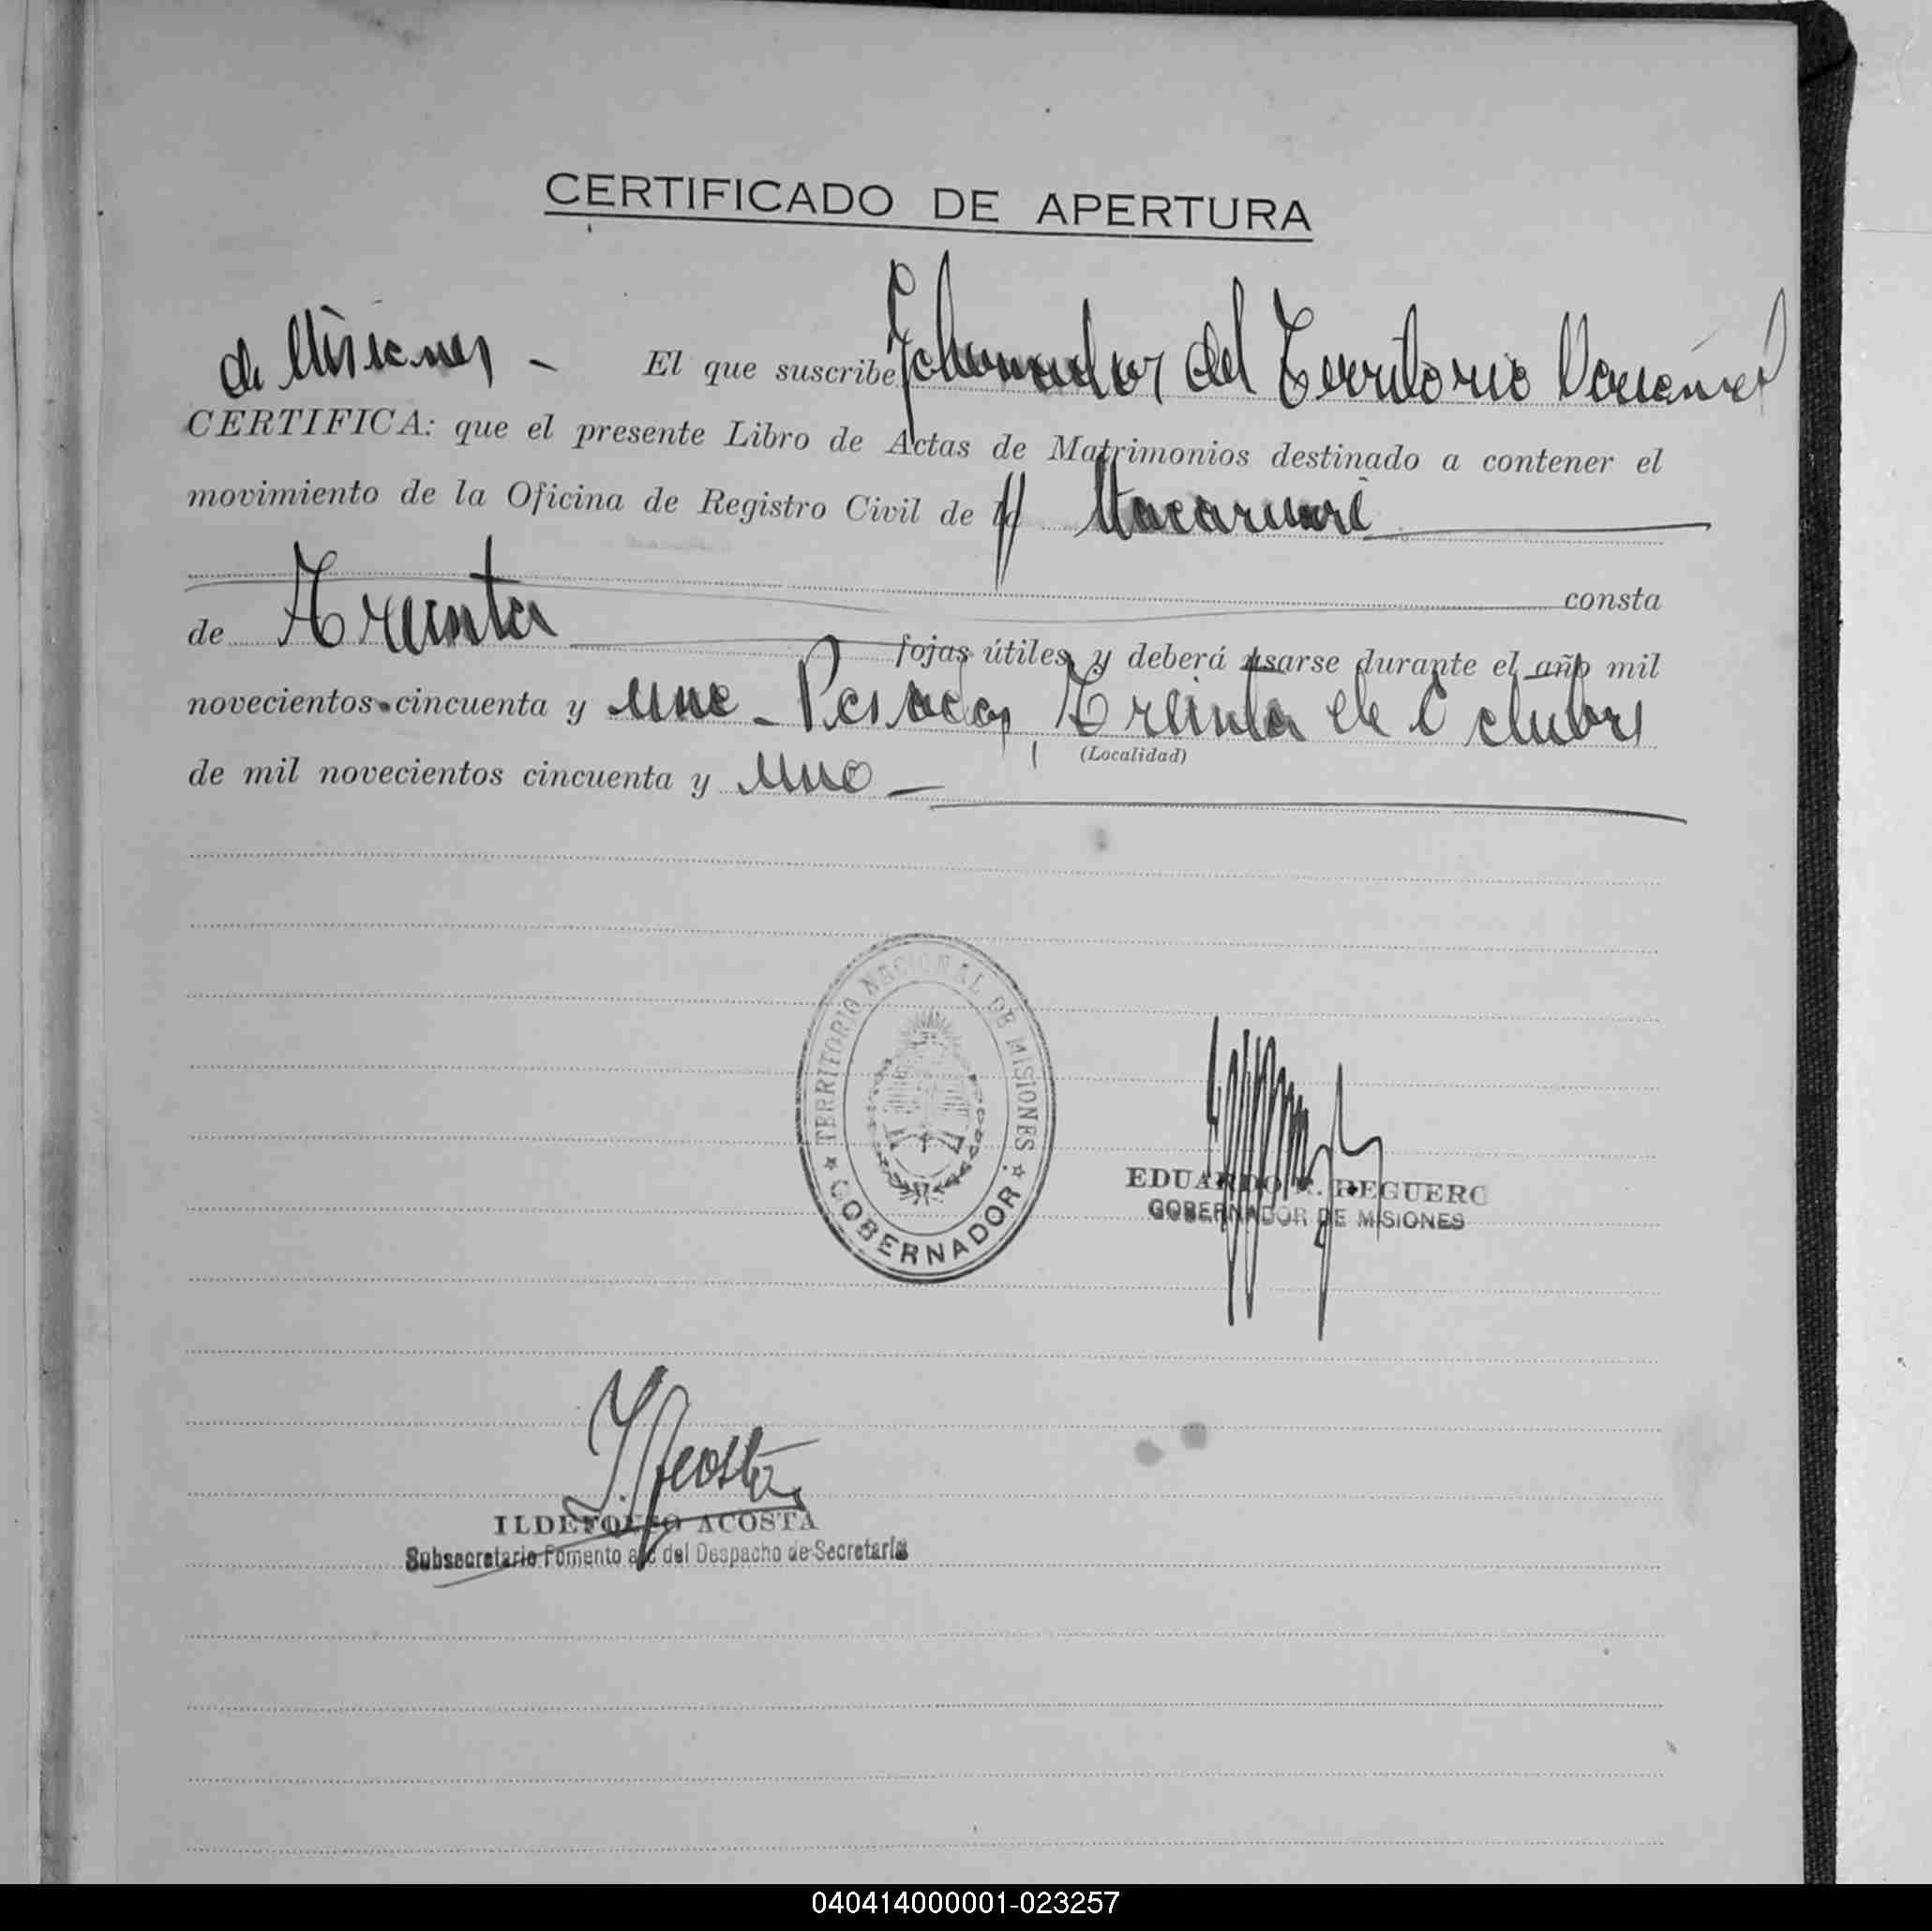 CERTIFICADO DE APERTURA
El que suscribe Gobernador del Territorio Nacional
de Misiones -
CERTIFICA: que el presente Libro de Actas de Matrimonios destinado a contener el
movimiento de la Oficina de Registro Civil de Itacaruaré
consta
de Treinta fojas útiles y deberá usarse durante el año mil
novecientos cincuenta y uno - Posadas, Treinta de Octubre
(Localidad)
de mil novecientos cincuenta y uno -
TERRITORIO NACIONAL DE MISIONES
GOBERNADOR
EDUARDO REGUERO
GOBERNADOR DE MISIONES
I. Acosta
ILDEFONSO ACOSTA
Subsecretario Fomento a/c del Despacho de Secretaría
040414000001-023257